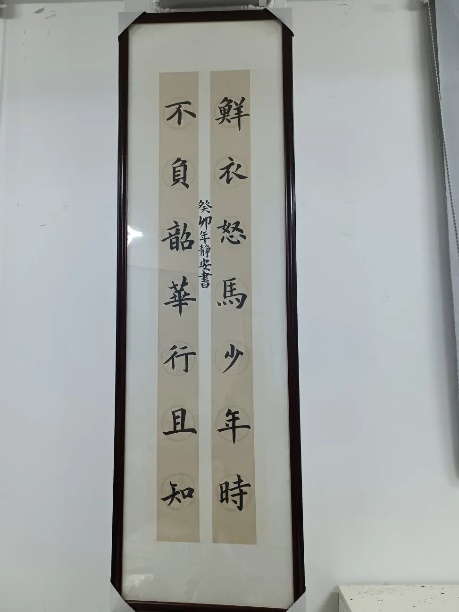 鮮衣怒馬少年時
不負韶華行且知
癸卯年靜安書